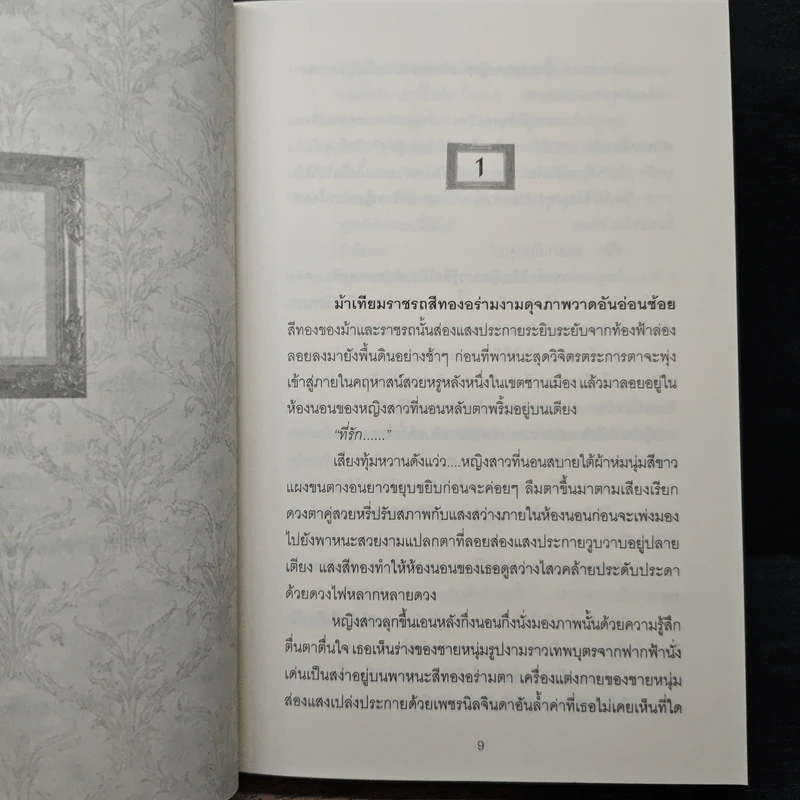 1
ม้าเทียมราชรถสีทองอร่ามงามดุจภาพวาดอันอ่อนช้อย
สีทองของม้าและราชรถนั้นส่องแสงประกายระยิบระยับจากท้องฟ้าล่อง
ลอยลงมายังพื้นดินอย่างช้าๆ ก่อนที่พาหนะสุดวิจิตรตระการตาจะพุ่ง
เข้าสู่ภายในคฤหาสน์สวยหรูหลังหนึ่งในเขตชานเมือง แล้วมาลอยอยู่ใน
ห้องนอนของหญิงสาวที่นอนหลับตาพริ้มอยู่บนเตียง
“ที่รัก......”
เสียงทุ้มหวานดังแว่ว....หญิงสาวที่นอนสบายใต้ผ้าห่มนุ่มสีขาว
แผงขนตางอนยาวขยุบขยิบก่อนจะค่อยๆ ลืมตาขึ้นมาตามเสียงเรียก
ดวงตาคู่สวยหรี่ปรับสภาพกับแสงสว่างภายในห้องนอนก่อนจะเพ่งมอง
ไปยังพาหนะสวยงามแปลกตาที่ลอยส่องแสงประกายวูบวาบอยู่ปลาย
เตียง แสงสีทองทำให้ห้องนอนของเธอดูสว่างไสวคล้ายประดับประดา
ด้วยดวงไฟหลากหลายดวง
หญิงสาวลุกขึ้นเอนหลังกึ่งนอนกึ่งนั่งมองภาพนั้นด้วยความรู้สึก
ตื่นตาตื่นใจ เธอเห็นร่างของชายหนุ่มรูปงามราวเทพบุตรจากฟากฟ้านั่ง
เด่นเป็นสง่าอยู่บนพาหนะสีทองอร่ามตา เครื่องแต่งกายของชายหนุ่ม
ส่องแสงเปล่งประกายด้วยเพชรนิลจินดาอันล้ำค่าที่เธอไม่เคยเห็นที่ใด
9